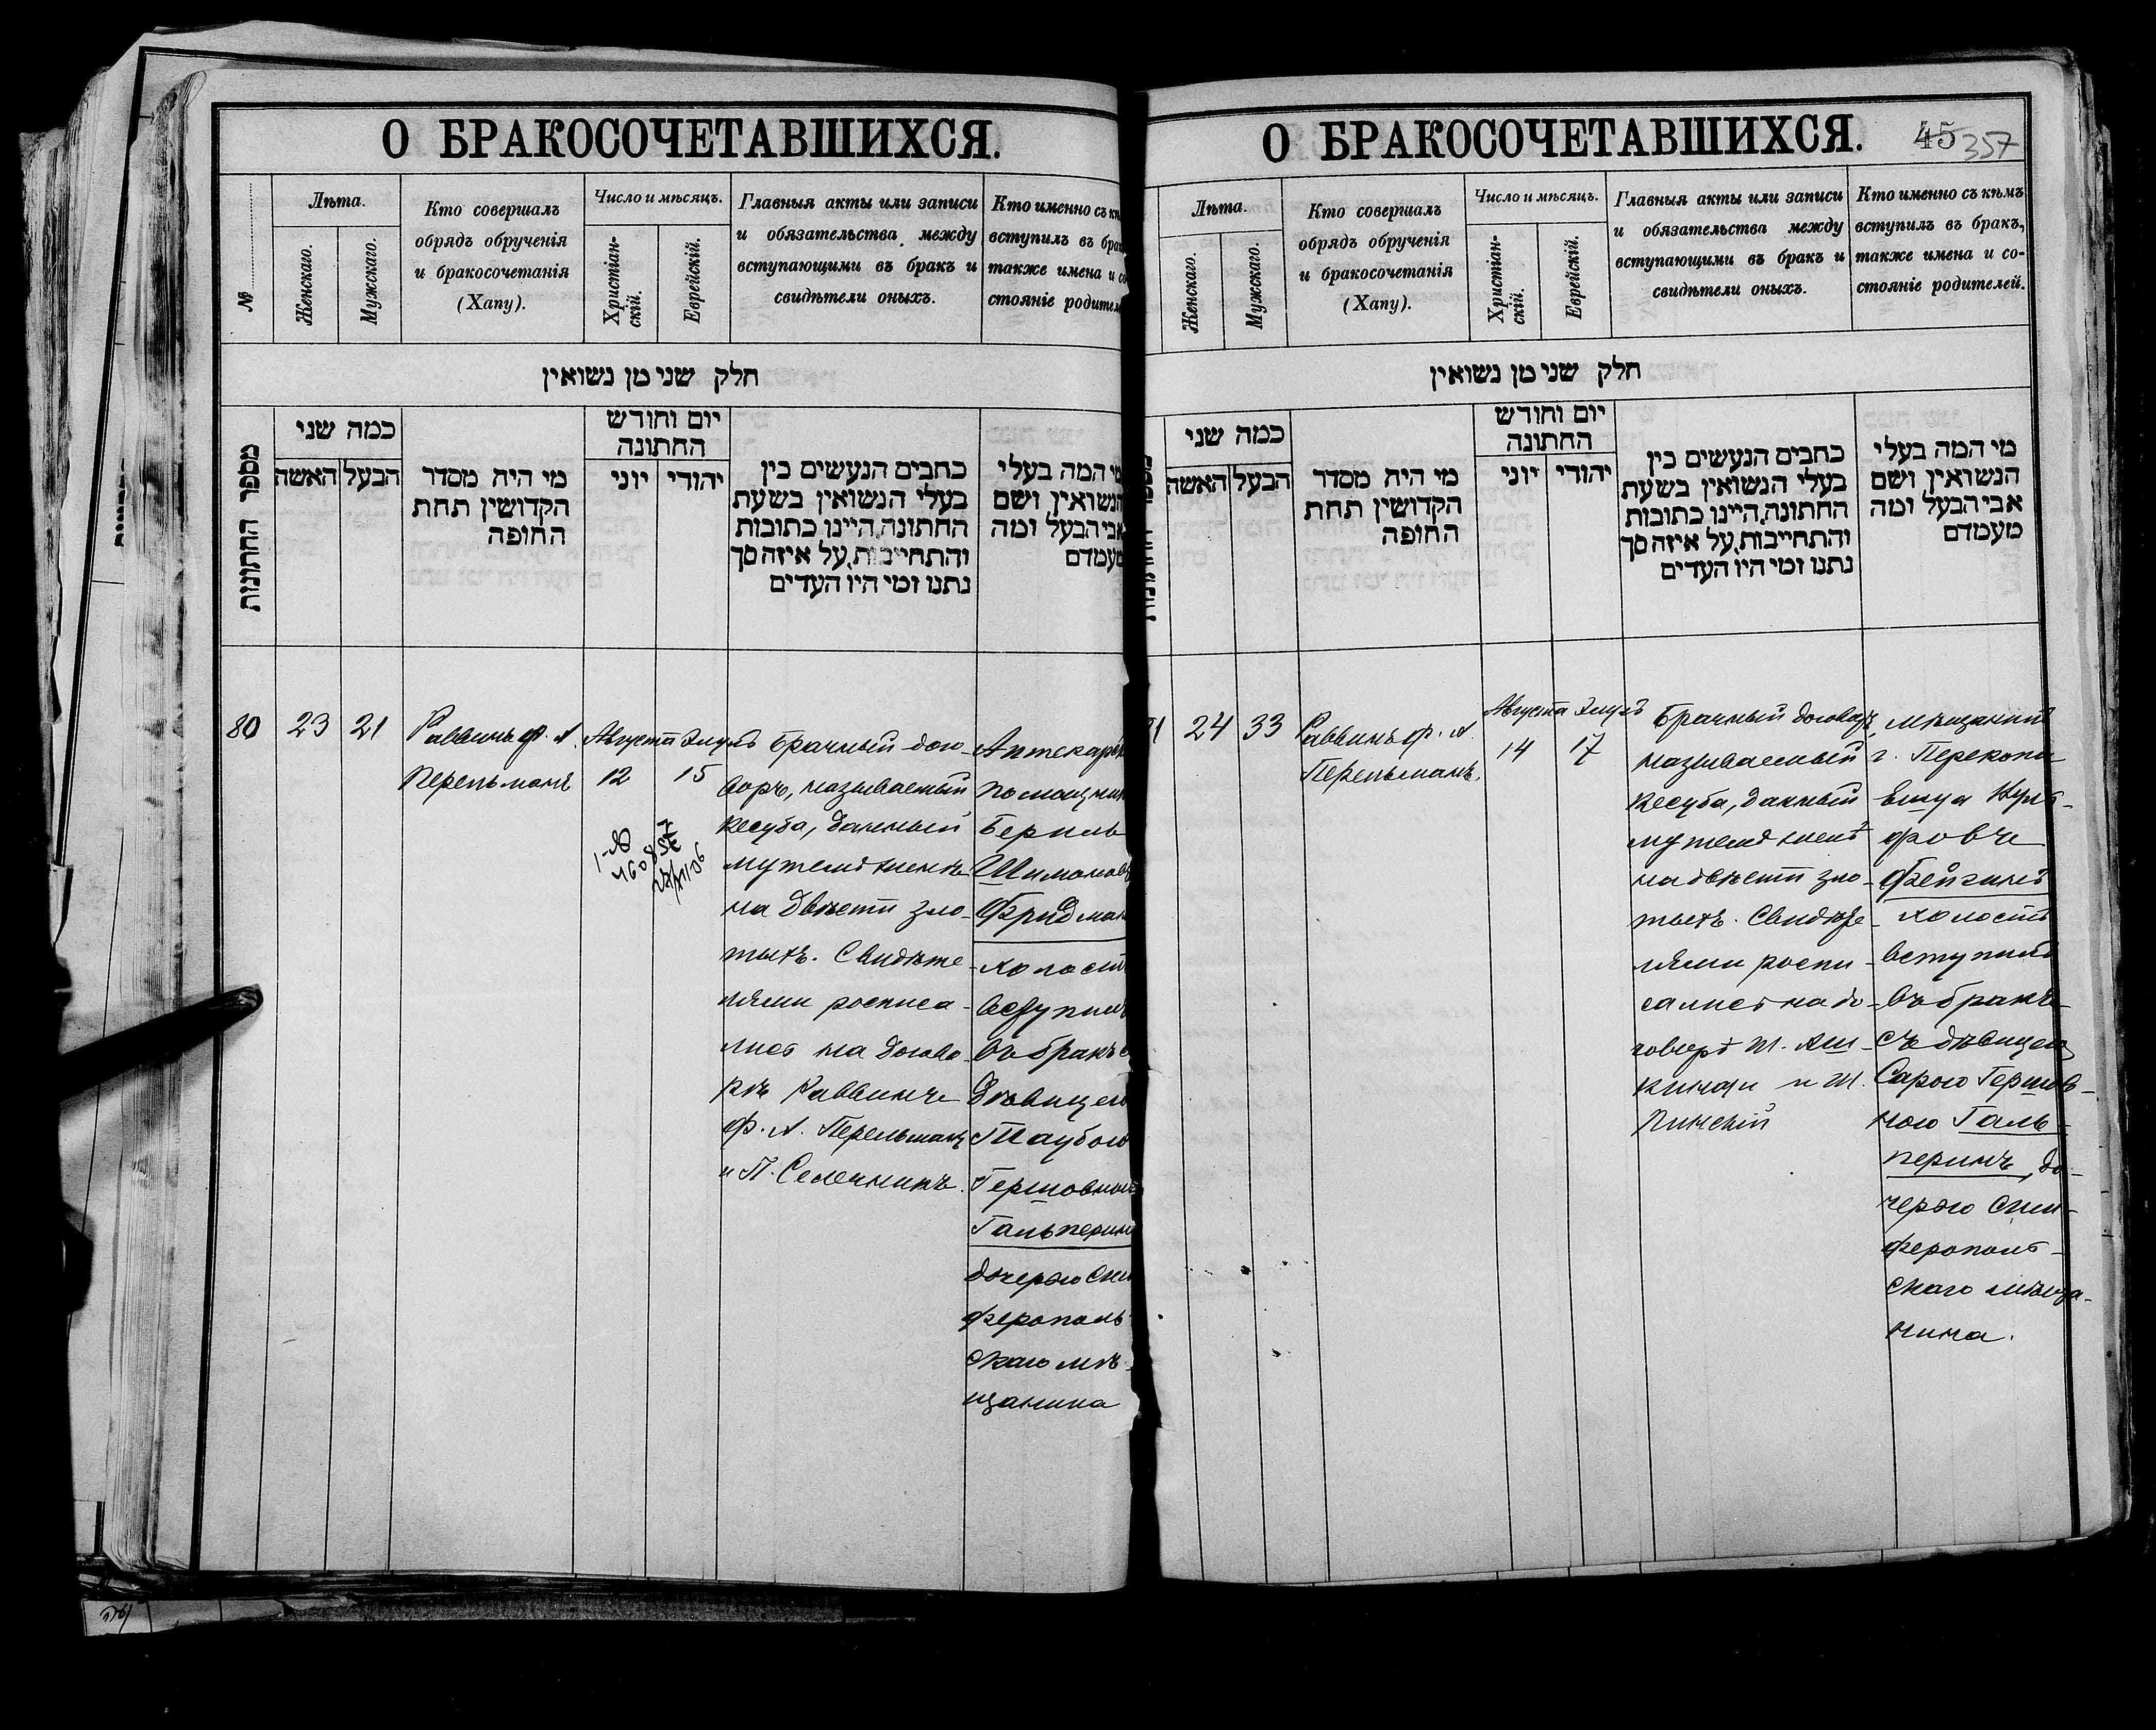 О БРАКОСОЧЕТАВШИХСЯ.
№
Лѣта.
Женскаго.
Мужскаго.
Кто совершалъ
обрядъ обрученія
и бракосочетанія
(Хапу).
Число и мѣсяцъ.
Христіан-
скій.
Еврейскій.
Главныя акты или записи
и обязательства между
вступающими въ бракъ и
свидѣтели оныхъ.
Кто именно съ
вступилъ въ
также имена и
стояніе
חלק שני מן נשואין
מספר החתונות
כמה שני
הבעל האשה
מי היה מסדר
הקדושין תחת
החופה
יום וחודש
החתונה
יהודי יוני
כתבים הנעשים בין
בעלי הנשואין בשעת
החתונה, היינו כתובות
והתחייבות, על איזה סך
נתנו ומי היו העדים
מי המה בעלי
הנשואין ושם
אבי הבעל ומה
מעמדם
80
23
21
Раввинъ Ф. А.
Перельманъ
Августа
12
Элулъ
15
Брачный дого-
воръ, называемый
кесуба, данный
мужемъ женѣ
на двѣсти зло-
тыхъ. Свидѣте-
лями росписа-
лись на догово-
рѣ Раввинъ
Ф. А. Перельманъ
и П. Селечникъ.
Аптекарск
помощник
Бериль
Шимонов
Фридман
холостъ
вступилъ
въ бракъ с
дѣвицею
Таубою
Гершовною
Гальперинъ
дочерью Сим
ферополь-
скаго мѣ-
щанина
О БРАКОСОЧЕТАВШИХСЯ.
45 357
Лѣта.
Женскаго.
Мужскаго.
Кто совершалъ
обрядъ обрученія
и бракосочетанія
(Хапу).
Число и мѣсяцъ.
Христіан-
скій.
Еврейскій.
Главныя акты или записи
и обязательства между
вступающими въ бракъ и
свидѣтели оныхъ.
Кто именно съ кѣмъ
вступилъ въ бракъ,
также имена и со-
стояніе родителей.
חלק שני מן נשואין
כמה שני
הבעל האשה
מי היה מסדר
הקדושין תחת
החופה
יום וחודש
החתונה
יהודי יוני
כתבים הנעשים בין
בעלי הנשואין בשעת
החתונה, היינו כתובות
והתחייבות, על איזה סך
נתנו ומי היו העדים
מי המה בעלי
הנשואין ושם
אבי הבעל ומה
מעמדם
1
24
33
Раввинъ Ф. А.
Перельманъ.
Августа
14
Элулъ
17
Брачный договоръ,
называемый
кесуба, данный
мужемъ женѣ
на двѣсти зло-
тыхъ. Свидѣте-
лями роспи-
сались на до-
говорѣ М.
и М.
Пинскій
мѣщанинъ
г. Перекопа
фовъ
Фейгинъ
холостъ
вступилъ
въ бракъ
съ дѣвицею
Сарою Гершов-
ною Галь-
перинъ, до-
черью Сим-
ферополь-
скаго мѣща-
нина.